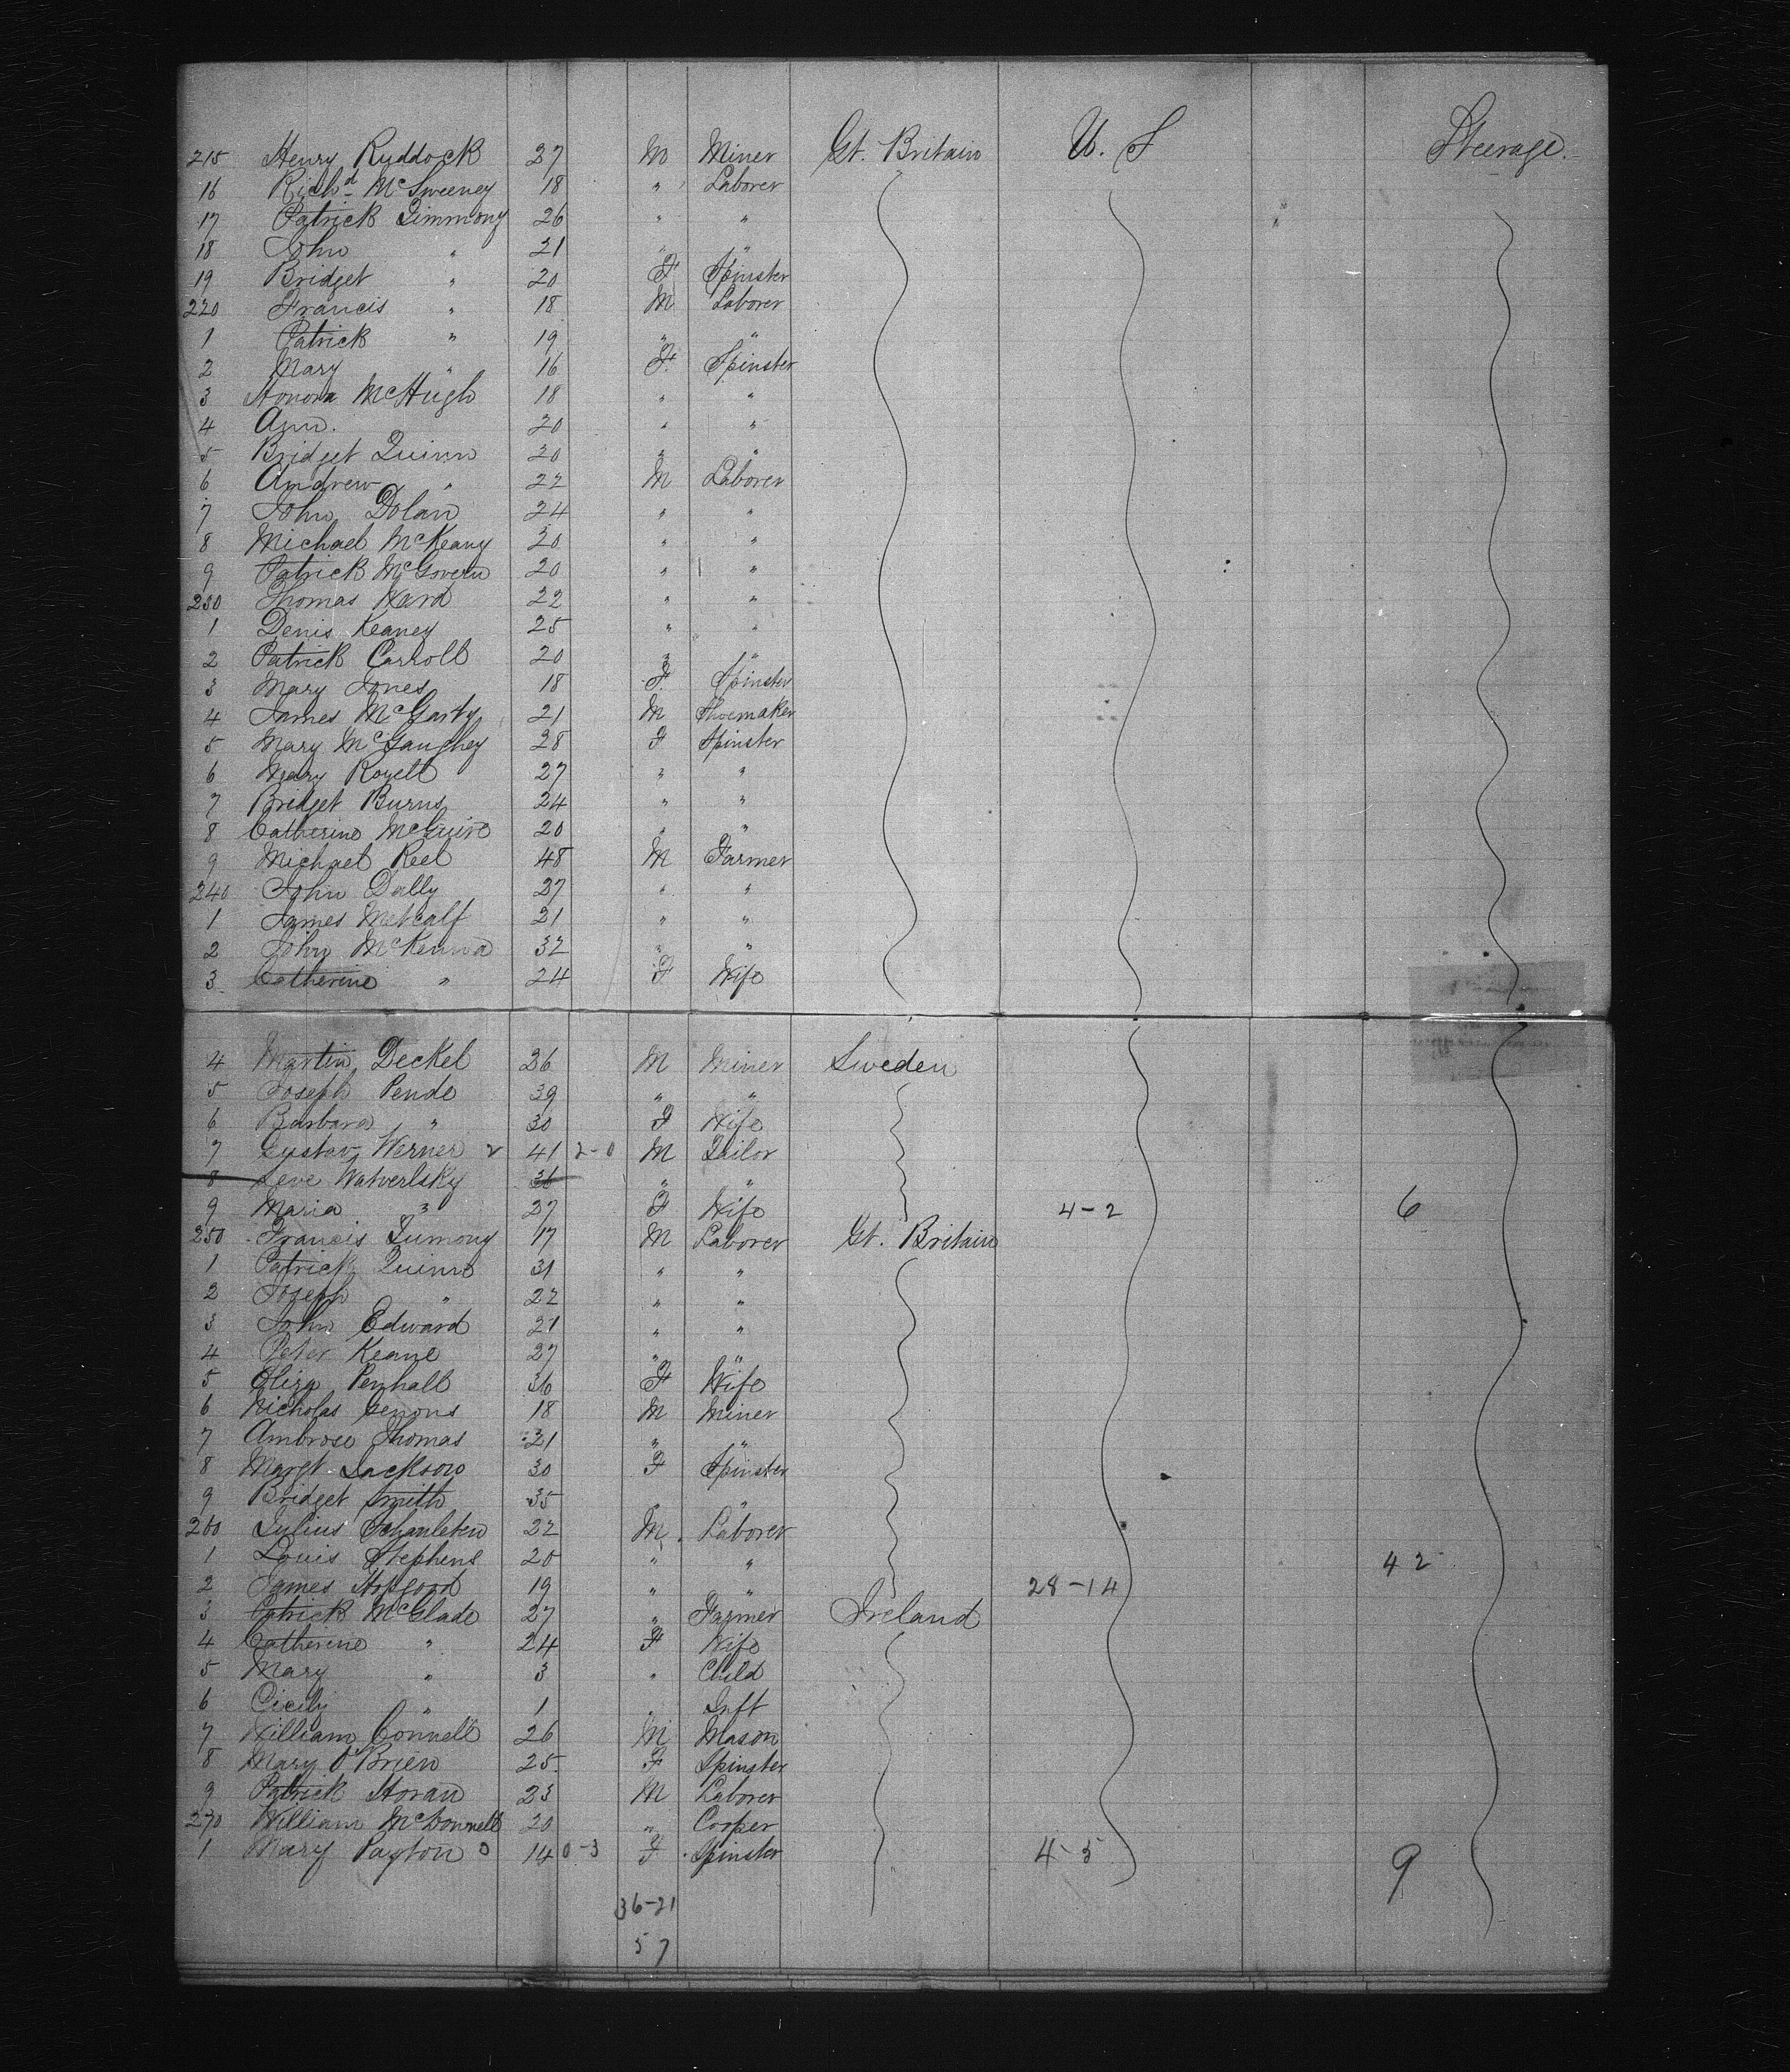 215 Henry Ruddock 27 M Miner Gt. Britain U. S Steerage.
16 Richd McSweeney 18 " Laborer
17 Patrick Timmony 26 " "
18 John " 21 " "
19 Bridget " 20 F Spinster
220 Francis " 18 M Laborer
1 Patrick " 19 " "
2 Mary " 16 F. Spinster
3 Honora McHugh 18 " "
4 Ann. 20 " "
5 Bridget Quinn 20 " "
6 Andrew " 22 M Laborer
7 John Dolan 24 " "
8 Michael McKeany 20 " "
9 Patrick McGovern 20 " "
230 Thomas Ward 22 " "
1 Denis Keaney 25 " "
2 Patrick Carroll 20 " "
3 Mary Jones 18 F. Spinster
4 James McGarty 21 M Shoemaker
5 Mary McGaughey 28 F Spinster
6 Mary 27 " "
7 Bridget Burns 24 " "
8 Catherine McGuire 20 " "
9 Michael Reel 48 M Farmer
240 John Dally 27 " "
1 James Metcalf 21 " "
2 John McKenna 32 " "
3 Catherine " 24 F Wife
4 Martin Deckel 26 M Miner Sweden
5 Joseph Pende 39 " "
6 Barbara " 30 F Wife
7 Gustav Werner 41 2-0 M Tailor
8 Leve Watverlsky 36 " "
9 Maria " 27 F Wife 4-2 6
250 Francis Tumony 17 M Laborer Gt. Britain
1 Patrick Quinn 31 " "
2 Joseph " 22 " "
3 John Edward 21 " "
4 Peter Keane 27 " "
5 Eliza Penhall 36 F Wife
6 Nicholas 18 M Miner
7 Ambrose Thomas 21 " "
8 Margt Jackson 30 F Spinster
9 Bridget Smith 35 " "
260 Julius 22 M. Laborer
1 Louis Stephens 20 " " 42
2 James Hopgood 19 " " 28-14
3 Patrick McGlade 27 " Farmer Ireland
4 Catherine " 24 F Wife
5 Mary " 3 " Child
6 Cicily " 1 " Inft
7 William Connell 26 M Mason
8 Mary O'Brien 25 F Spinster
9 Patrick Horan 23 M Laborer
270 William McDonnell 20 " Cooper
1 Mary Payton 14 0-3 F Spinster 4-5 9
36-21
57